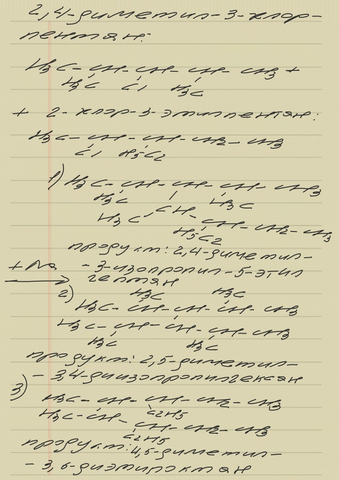 2,4-диметил-3-хлор-
пентан:
H3C - CH - CH - CH - CH3 +
H3C Cl H3C
+ 2-хлор-3-этилпентан:
H3C - CH - CH - CH2 - CH3
Cl H5C2
1) H3C - CH - CH - CH - CH3
H3C H3C
H3C - CH
CH - CH2 - CH3
H5C2
продукт: 2,4-диметил-
+ Na - 3-изопропил-5-этил
гептан
2) H3C H3C
H3C - CH - CH - CH - CH3
H3C - CH - CH - CH - CH3
H3C H3C
продукт: 2,5-диметил-
- 3,4-диизопропилгексан
3) H3C - CH - CH - CH2 - CH3
C2H5
H3C - CH - CH - CH2 - CH3
C2H5
продукт: 4,5-диметил-
- 3,6-диэтилоктан